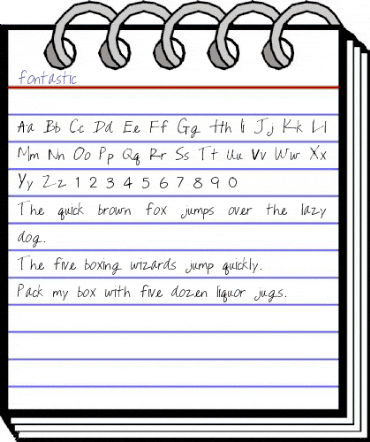 fontastic
Aa Bb Cc Dd Ee Ff Gg Hh Ii Jj Kk Ll
Mm Nn Oo Pp Qq Rr Ss Tt Uu Vv Ww Xx
Yy Zz 1 2 3 4 5 6 7 8 9 0
The quick brown fox jumps over the lazy
dog.
The five boxing wizards jump quickly.
Pack my box with five dozen liquor jugs.